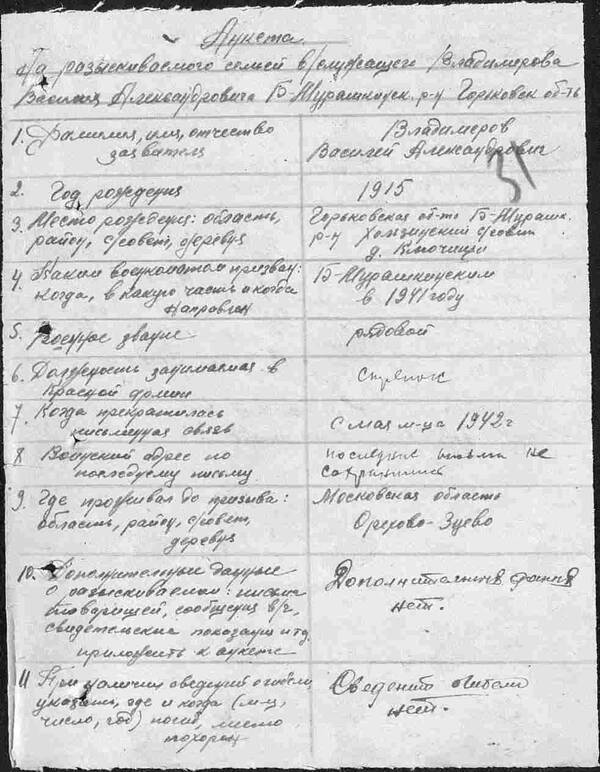 Анкета
На разыскиваемого семьей в/служащего Владимерова
Василия Александровича Б-Мурашкинск. р-н Горьковск об-ть
1. Фамилия, имя, отчество
заявителя
Владимеров
Василей Александрович
31
2. Год рождения
1915
3. Место рождения: область,
район, с/совет, деревня
Горьковская об-ть Б-Мурашк.
р-н с/совет
д. Ключищи
4. Каким военкоматом призван:
когда, в какую часть и когда
направлен
Б-Мурашкинским
в 1941 году
5. Военное звание
рядовой
6. Должность занимаемая в
Красной армии
Стрелок
7. Когда прекратилась
письменная связь
С мая м-ца 1942 г
8 Воинский адрес по
последнему письму
последние письма не
сохранились
9. Где проживал до призыва:
область, район, с/совет,
деревня
Московская область
Орехово-Зуево
10. Дополнительные данные
о разыскиваемом: письма
товарищей, сообщения в/ч,
свидетельские показания и т.д.
приложить к анкете
Дополнительных данных
нет.
11 При наличии сведений о гибели
указать, где и когда (м-ц,
число, год) погиб, место
похорон
Сведений о гибели
нет.